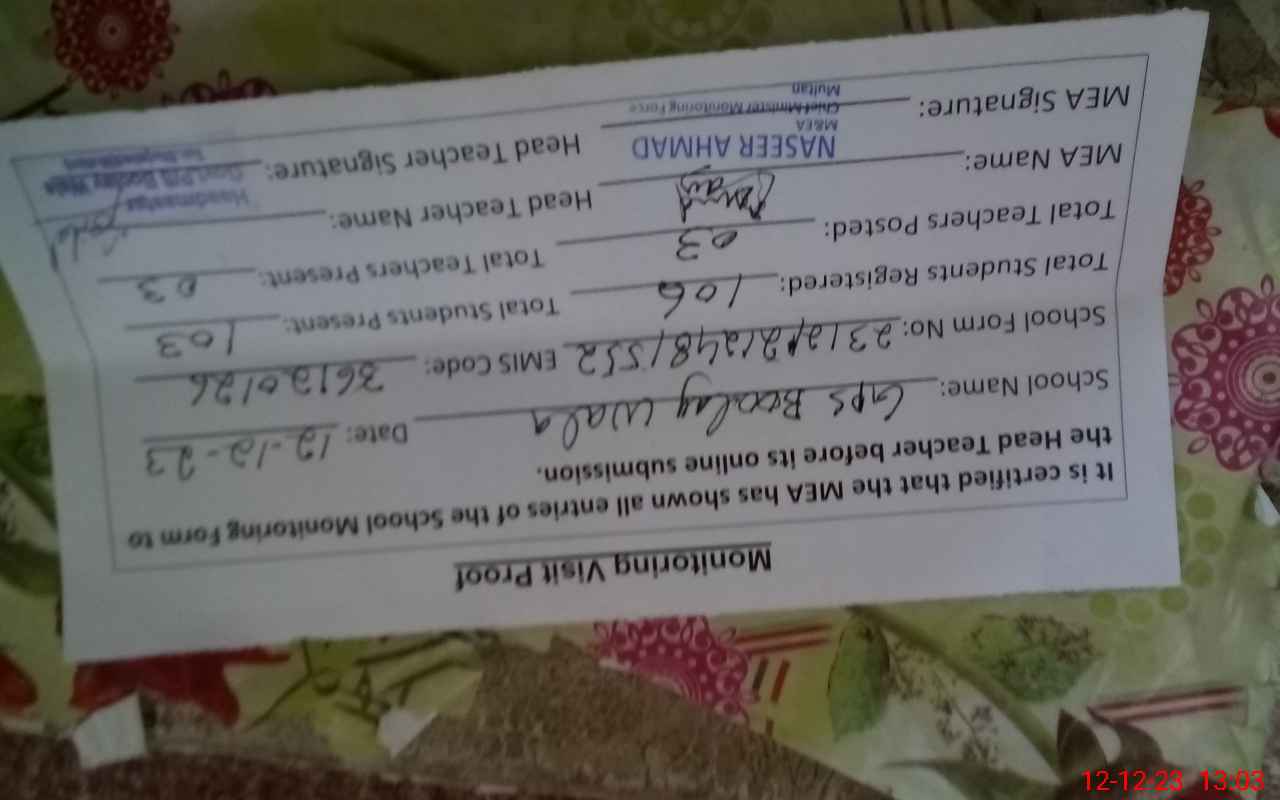 Monitoring Visit Proof
It is certified that the MEA has shown all entries of the School Monitoring Form to
the Head Teacher before its online submission.
School Name: GPS Booley wala Date: 12-12-23
School Form No: EMIS Code: 36120126
Total Students Registered: 106 Total Students Present: 103
Total Teachers Posted: 03 Total Teachers Present: 03
MEA Name: Head Teacher Name:
NASEER AHMAD
M&EA
Chief Minister Monitoring Force
Multan
MEA Signature: Head Teacher Signature:
Headmaster
12-12-23 13:03